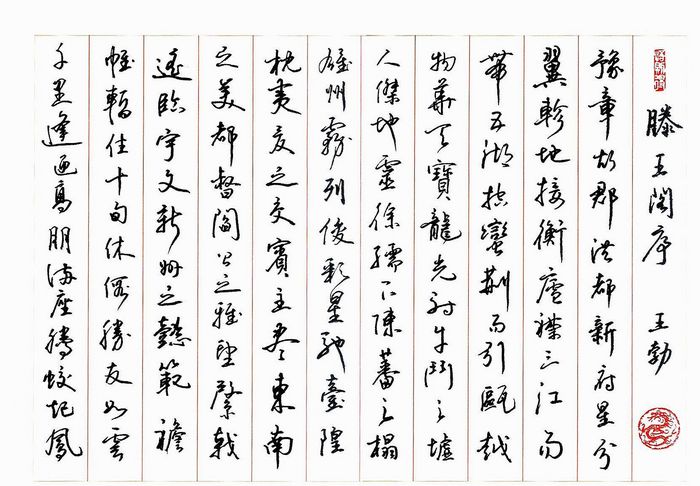 滕王閣序 王勃
豫章故郡洪都新府星分
翼軫地接衡廬襟三江而
帶五湖控蠻荊而引甌越
物華天寶龍光射牛鬥之墟
人傑地靈徐孺下陳蕃之榻
雄州霧列俊彩星馳臺隍
枕夷夏之交賓主盡東南
之美都督閻公之雅望棨戟
遙臨宇文新州之懿範襜
帷暫住十旬休假勝友如雲
千里逢迎高朋滿座騰蛟起鳳